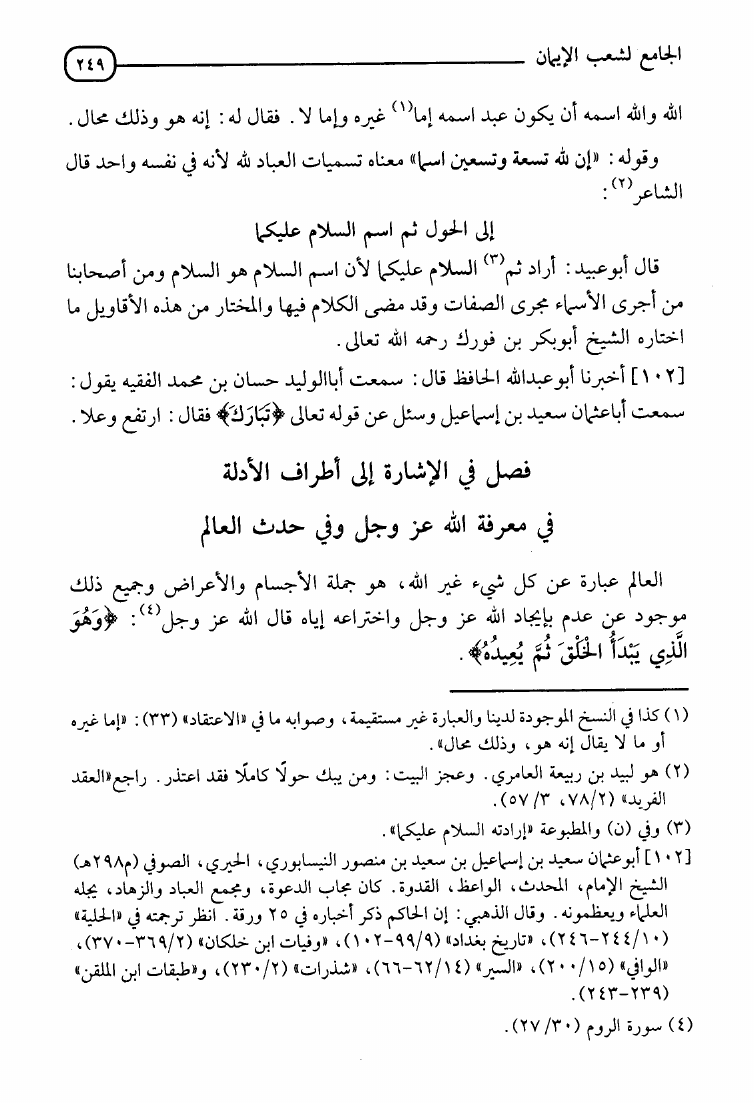 الجامع لشعب الإيمان ٢٤٩
الله والله اسمه أن يكون عبد اسمه إما(١) غيره وإما لا. فقال له: إنه هو وذلك محال.
وقوله: «إن لله تسعة وتسعين اسما» معناه تسميات العباد لله لأنه في نفسه واحد قال
الشاعر(٢):
إلى الحول ثم اسم السلام عليكما
قال أبوعبيد: أراد ثم(٣) السلام عليكما لأن اسم السلام هو السلام ومن أصحابنا
من أجرى الأسماء مجرى الصفات وقد مضى الكلام فيها والمختار من هذه الأقاويل ما
اختاره الشيخ أبوبكر بن فورك رحمه الله تعالى.
[١٠٢] أخبرنا أبوعبدالله الحافظ قال: سمعت أباالوليد حسان بن محمد الفقيه يقول:
سمعت أباعثمان سعيد بن إسماعيل وسئل عن قوله تعالى ﴿تَبَارَكَ﴾ فقال: ارتفع وعلا.
فصل في الإشارة إلى أطراف الأدلة
في معرفة الله عز وجل وفي حدث العالم
العالم عبارة عن كل شيء غير الله، هو جملة الأجسام والأعراض وجميع ذلك
موجود عن عدم بإيجاد الله عز وجل واختراعه إياه قال الله عز وجل(٤): ﴿وَهُوَ
الَّذِي يَبْدَأُ الْخَلْقَ ثُمَّ يُعِيدُهُ﴾.
(١) كذا في النسخ الموجودة لدينا والعبارة غير مستقيمة، وصوابه ما في «الاعتقاد» (٣٣): «إما غيره
أو ما لا يقال إنه هو، وذلك محال».
(٢) هو لبيد بن ربيعة العامري. وعجز البيت: ومن يبك حولًا كاملًا فقد اعتذر. راجع«العقد
الفريد» (٧٨/٢، ٥٧/٣).
(٣) وفي (ن) والمطبوعة «إرادته السلام عليكما».
[١٠٢] أبوعثمان سعيد بن إسماعيل بن سعيد بن منصور النيسابوري، الحيري، الصوفي (م٢٩٨هـ)
الشيخ الإمام، المحدث، الواعظ، القدوة. كان مجاب الدعوة، ومجمع العباد والزهاد، يجله
العلماء ويعظمونه. وقال الذهبي: إن الحاكم ذكر أخباره في ٢٥ ورقة. انظر ترجمته في «الحلية»
(٢٤٤/١٠-٢٤٦)، «تاريخ بغداد» (٩٩/٩-١٠٢)، «وفيات ابن خلكان» (٣٦٩/٢-٣٧٠)،
«الوافي» (٢٠٠/١٥)، «السير» (٦٢/١٤-٦٦)، «شذرات» (٢٣٠/٢)، و«طبقات ابن الملقن»
(٢٣٩-٢٤٣).
(٤) سورة الروم (٢٧/٣٠).